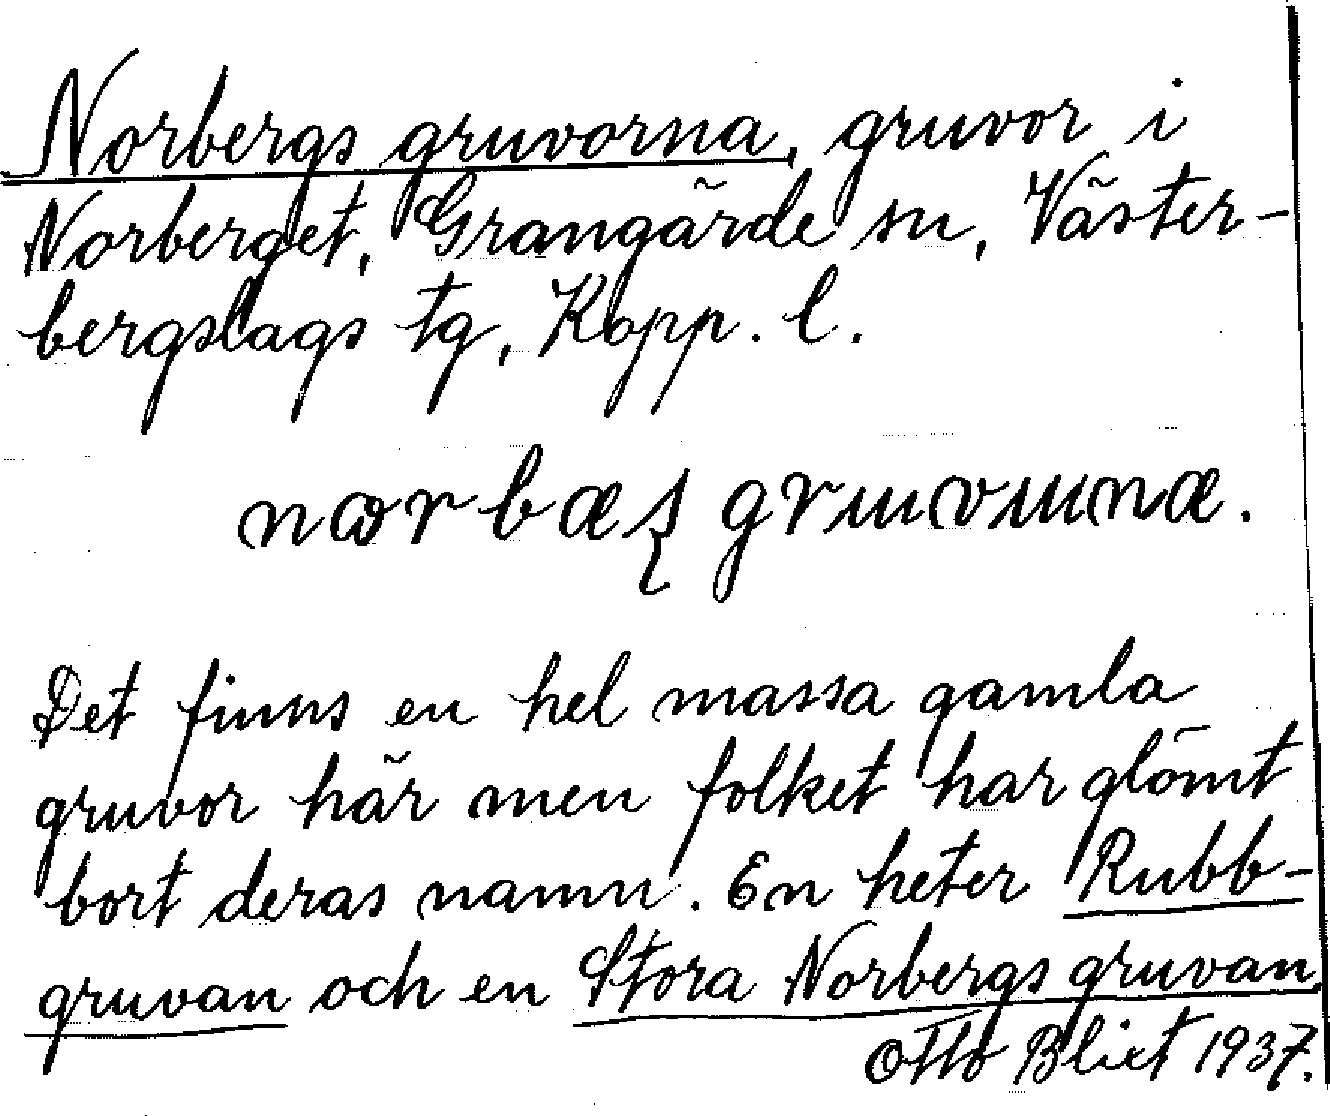 Norbergs gruvorna, gruvor i
Norberget, Grangärde sn, Väster-
bergslags tg, Kopp. l.
Det finns en hel massa gamla
gruvor här men folket har glömt
bort deras namn. En heter Rubb-
gruvan och en Stora Norbergs gruvan.
Otto Blixt 1937.